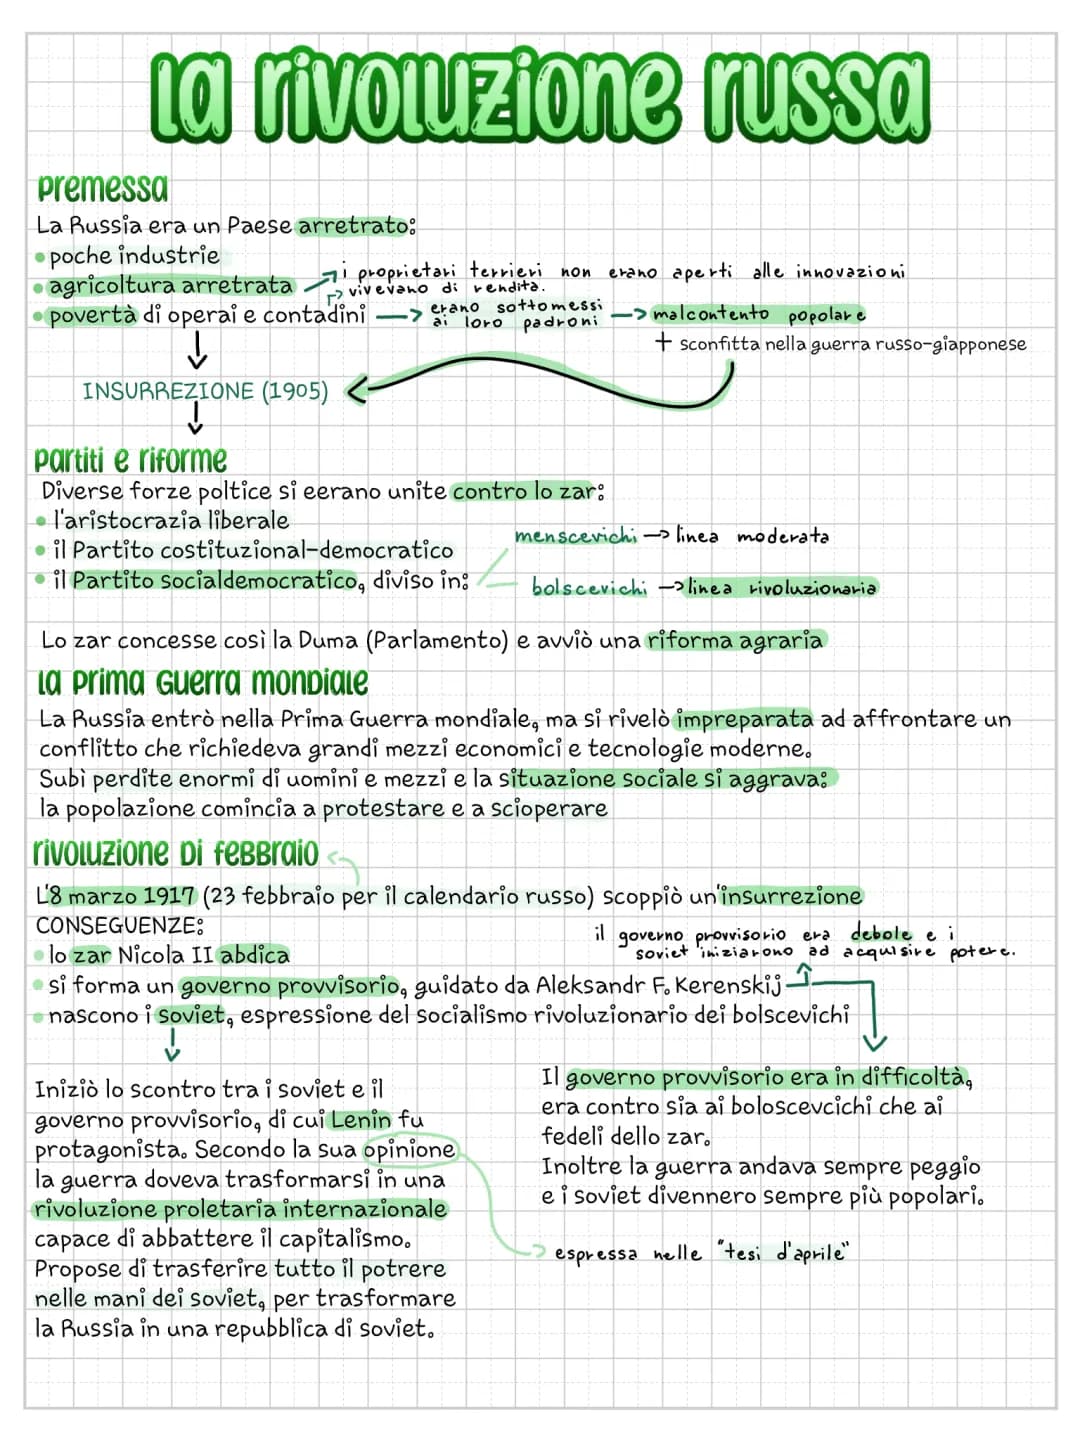 la rivoluzione russa
premessa
La Russia era un Paese arretrato:
• poche industrie
• agricoltura arretrata
i proprietari terrieri non erano aperti alle innovazioni
vivevano di rendita.
• povertà di operai e contadini → erano sottomessi
ai loro padroni → malcontento popolare
+ sconfitta nella guerra russo-giapponese
INSURREZIONE (1905)
partiti e riforme
Diverse forze poltice si eerano unite contro lo zar:
• l'aristocrazia liberale
• il Partito costituzional-democratico
• il Partito socialdemocratico, diviso in:
menscevichi → linea moderata
bolscevichi → linea rivoluzionaria
Lo zar concesse così la Duma (Parlamento) e avviò una riforma agraria
la prima guerra mondiale
La Russia entrò nella Prima Guerra mondiale, ma si rivelò impreparata ad affrontare un
conflitto che richiedeva grandi mezzi economici e tecnologie moderne.
Subì perdite enormi di uomini e mezzi e la situazione sociale si aggrava:
la popolazione comincia a protestare e a scioperare
rivoluzione di febbraio
L'8 marzo 1917 (23 febbraio per il calendario russo) scoppiò un'insurrezione
CONSEGUENZE:
• lo zar Nicola II abdica
il governo provvisorio era debole e i
soviet iniziarono ad acquisire potere.
• si forma un governo provvisorio, guidato da Aleksandr F. Kerenskij
• nascono i soviet, espressione del socialismo rivoluzionario dei bolscevichi
Iniziò lo scontro tra i soviet e il
governo provvisorio, di cui Lenin fu
protagonista. Secondo la sua opinione
la guerra doveva trasformarsi in una
rivoluzione proletaria internazionale
capace di abbattere il capitalismo.
Propose di trasferire tutto il potrere
nelle mani dei soviet, per trasformare
la Russia in una repubblica di soviet.
Il governo provvisorio era in difficoltà,
era contro sia ai boloscevcichi che ai
fedeli dello zar.
Inoltre la guerra andava sempre peggio
e i soviet divennero sempre più popolari.
espressa nelle "tesi d'aprile"